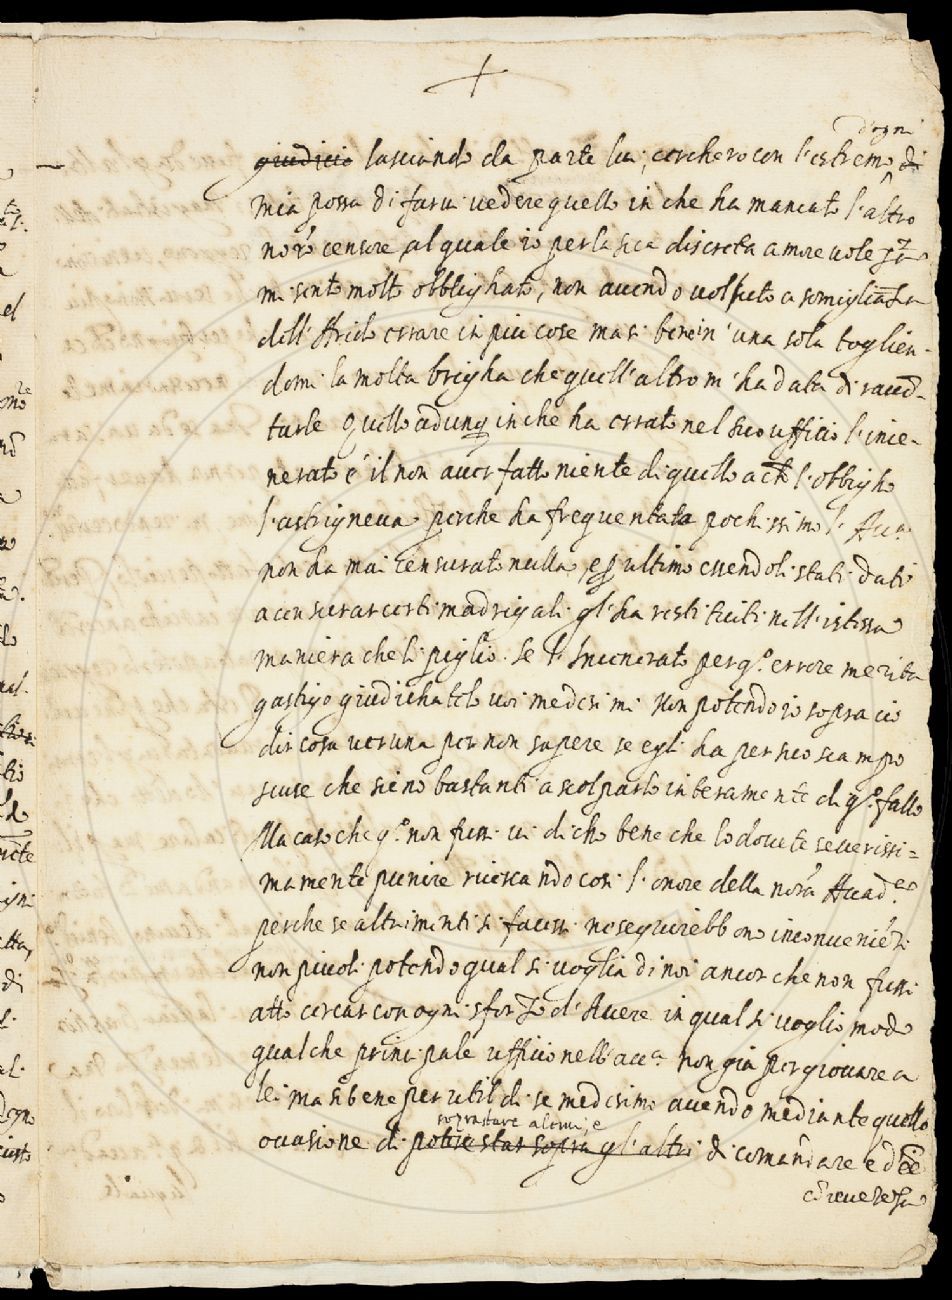 d'ogni
giudicio lasciando da parte lui, cercherò con l'estremo di
mia possa di farvi vedere quello in che ha mancato l'altro
nro censore, al quale io per la sua discreta amorevolezza
mi sento molto obblighato, non avendo voluto a somiglianza
dell'Arido errare in più cose ma sì bene in una sola toglien-
domi la molta brigha che quell'altro m'ha data di raccō-
tarle Quello adunq in che ha errato nel suo uffitio l'ince-
nerato è il non aver fatto niente di quello a ch l'obbligho
l'astrigneva perche ha frequentata pochissimo l'Acca
non ha mai censurato nulla, e ultimo essendoli stati dati
a censurar certi madrigali gl'ha restituiti nell'istessa
maniera che li pigliò. Se l'Incenerato per qo errore merita
gastigo giudichatelo voi medesimi Non potendo io sopra ciò
dir cosa veruna per non sapere se egli ha per suo scampo
scuse che sieno bastanti a scolparlo interamente di qo fallo
Ma caso che qo non fussi vi dicho bene che lo dovete severissi=
mamente punire ricercando così l'onore della nora Accadea
perche se altrimenti si facessi ne seguirebbono inconveniēti
non piccoli potendo qual si voglia di noi ancor che non fussi
atto cercar con ogni sforzo d'Avere in qual si voglio modo
qualche principale uffitio nell'acca non già per giovare a
lei ma sì bene per util di se medesimo avendo mediante quello
soprastare altrui, e
ocasione di potere star sopra gl'altri di comandare e